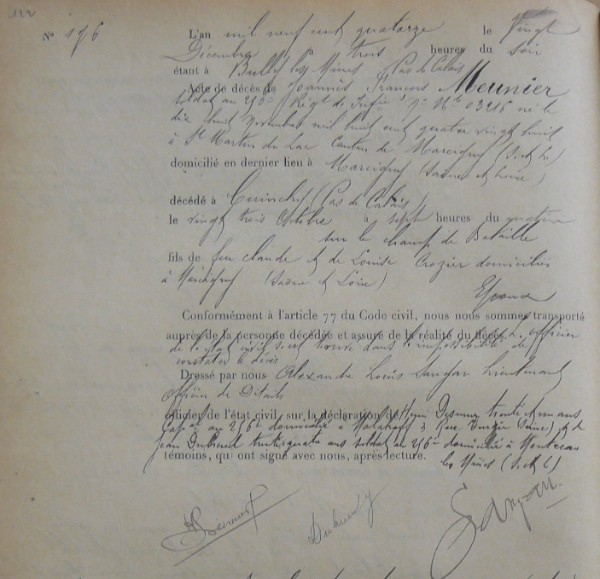 122
N° 176 L'an mil neuf cent quatorze le Vingt
Décembre à trois heures du soir
étant à Bully les Mines (Pas de Calais)
Acte de décès de Joannis François Meunier
soldat au 210e Régt de Infie No Mle 03216 né le
dix huit Novembre mil huit cent quatre vingt huit
à St Martin du Lac Canton de Marcigny (S. et L.)
domicilié en dernier lieu à Marcigny (Saône et Loire)
décédé à Cuinchy (Pas de Calais)
le vingt trois Octobre à sept heures du matin
sur le champ de Bataille
fils de feu Claude et de Louise Crozier domiciliés
à Marcigny (Saône et Loire)
Conformément à l'article 77 du Code civil, nous nous sommes transporté
auprès de la personne décédée et assuré de la réalité du décès. L'officier
de l'état civil s'est trouvé dans l'impossibilité de
constater le décès
Dressé par nous Alexandre Louis Lieutenant
Officier de Détails
officier de l'état civil, sur la déclaration de Henri trente et un ans
au 216e domicilié à Malakoff 3 Rue (Seine) et de
Jean Dubreuil trente quatre ans soldat au 216e domicilié à Montceau
témoins, qui ont signé avec nous, après lecture. les Mines (S. et L.)